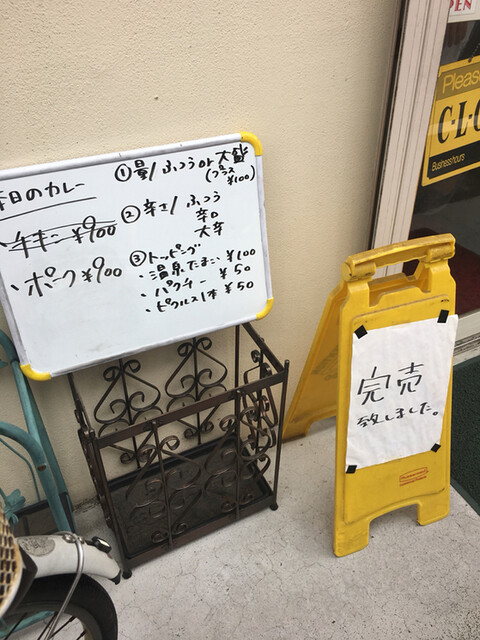 日のカレー
¥900
・ポーク ¥900
①量/ ふつう or 大盛
(プラス
¥100)
②辛さ/ ふつう
辛口
大辛
③トッピング
・温泉たまご ¥100
・パクチー ¥50
・ピクルス1本 ¥50
完売
致しました。
PEN
Please
C-L
Business hours